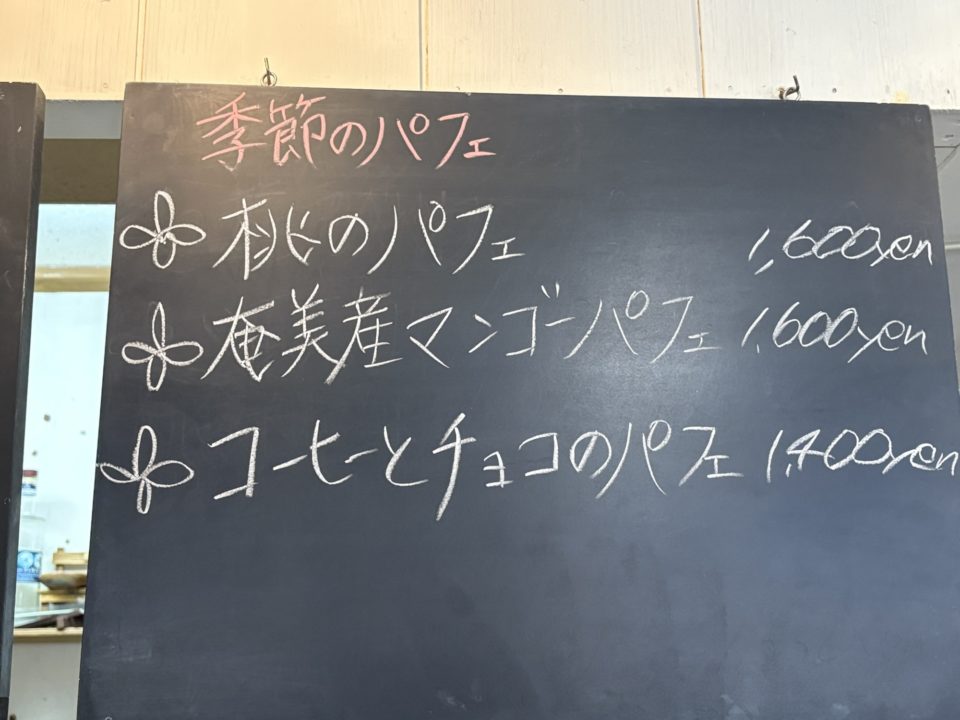 季節のパフェ
桃のパフェ 1,600yen
奄美産マンゴーパフェ 1,600yen
コーヒーとチョコのパフェ 1,400yen